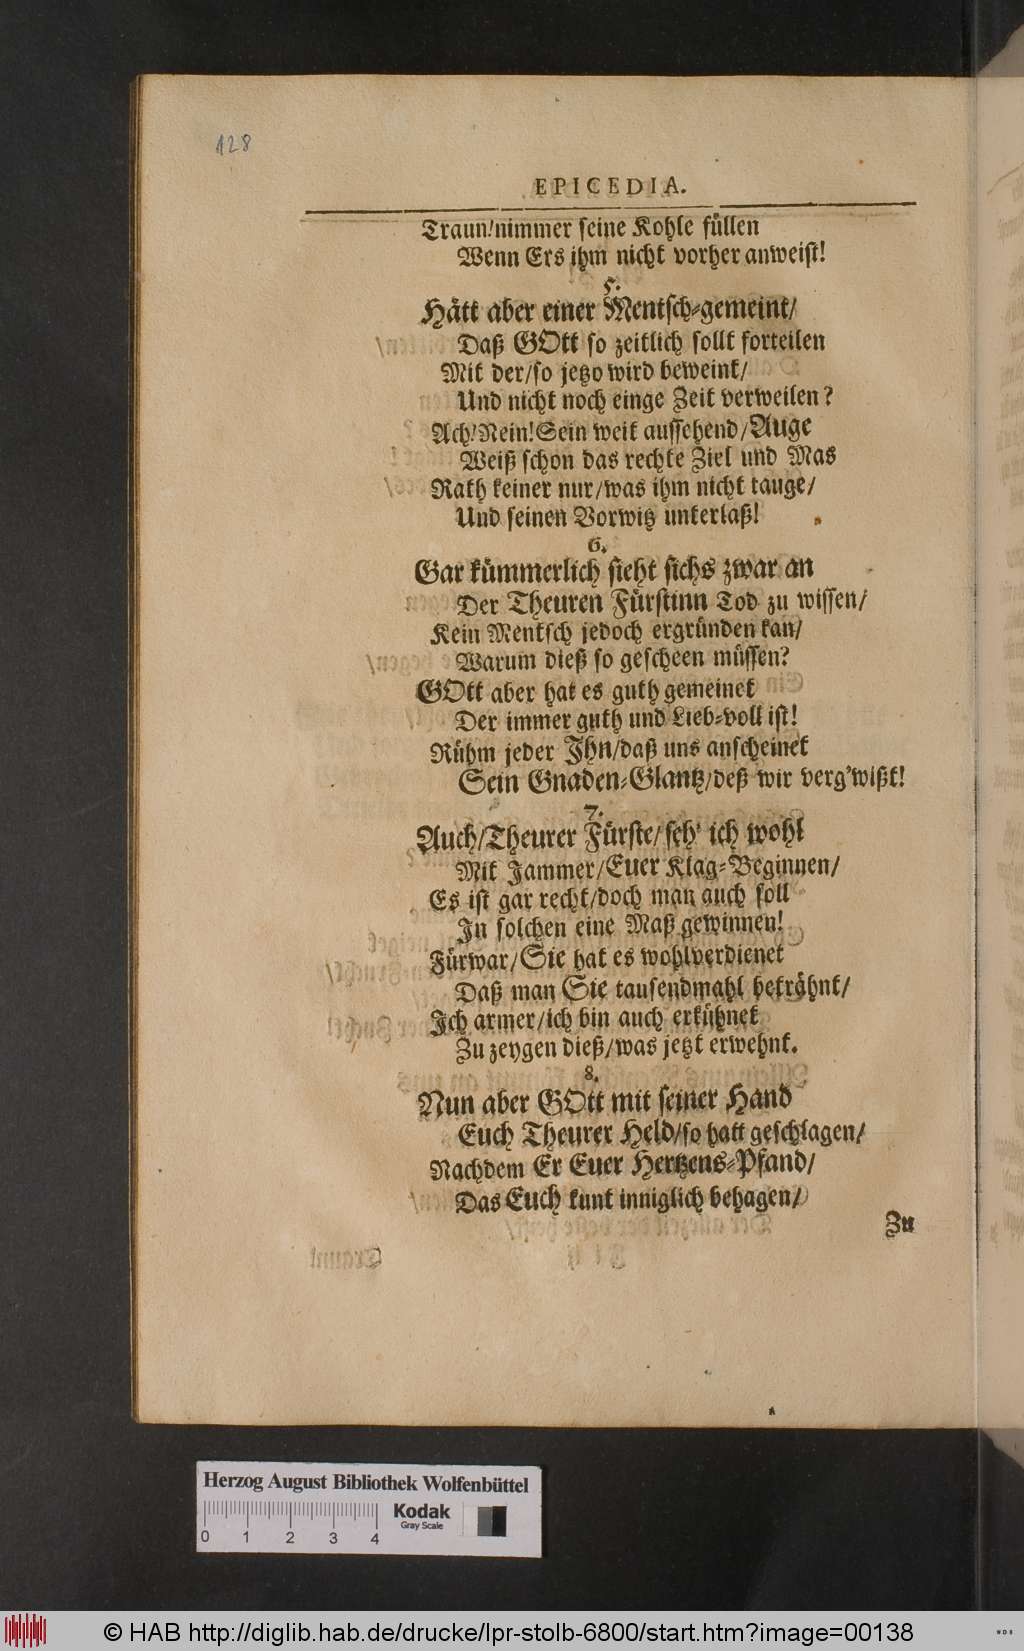 128
EPICEDIA.
Traun/nimmer seine Kohle füllen
Wenn Ers ihm nicht vorher anweist!
5.
Hätt aber einer Mentsch-gemeint/
Daß GOtt so zeitlich sollt forteilen
Mit der/so jetzo wird beweint/
Und nicht noch einge Zeit verweilen?
Ach! Nein! Sein weit aussehend/Auge
Weiß schon das rechte Ziel und Mas
Rath keiner nur/was ihm nicht tauge/
Und seinen Vorwitz unterlaß!
6.
Gar kümmerlich sieht sichs zwar an
Der Theuren Fürstinn Tod zu wissen/
Kein Mentsch jedoch ergründen kan/
Warum dieß so gescheen müssen?
GOtt aber hat es guth gemeinet
Der immer guth und Lieb-voll ist!
Rühm jeder Ihn/daß uns anscheinet
Sein Gnaden-Glantz/deß wir verg'wißt!
7.
Auch/Theurer Fürste/seh' ich wohl
Mit Jammer/Euer Klag-Beginnen/
Es ist gar recht/doch man auch soll
In solchen eine Maß gewinnen!
Fürwar/Sie hat es wohlverdienet
Daß man Sie tausendmahl beträhnt/
Ich armer/ich bin auch erkühnet
Zu zeygen dieß/was jetzt erwehnt.
8.
Nun aber GOtt mit seiner Hand
Euch Theurer Held/so hatt geschlagen/
Nachdem Er Euer Hertzens-Pfand/
Das Euch kunt inniglich behagen/
Zu
Herzog August Bibliothek Wolfenbüttel
0 1 2 3 4
Kodak
Gray Scale
© HAB http://diglib.hab.de/drucke/lpr-stolb-6800/start.htm?image=00138
WDB